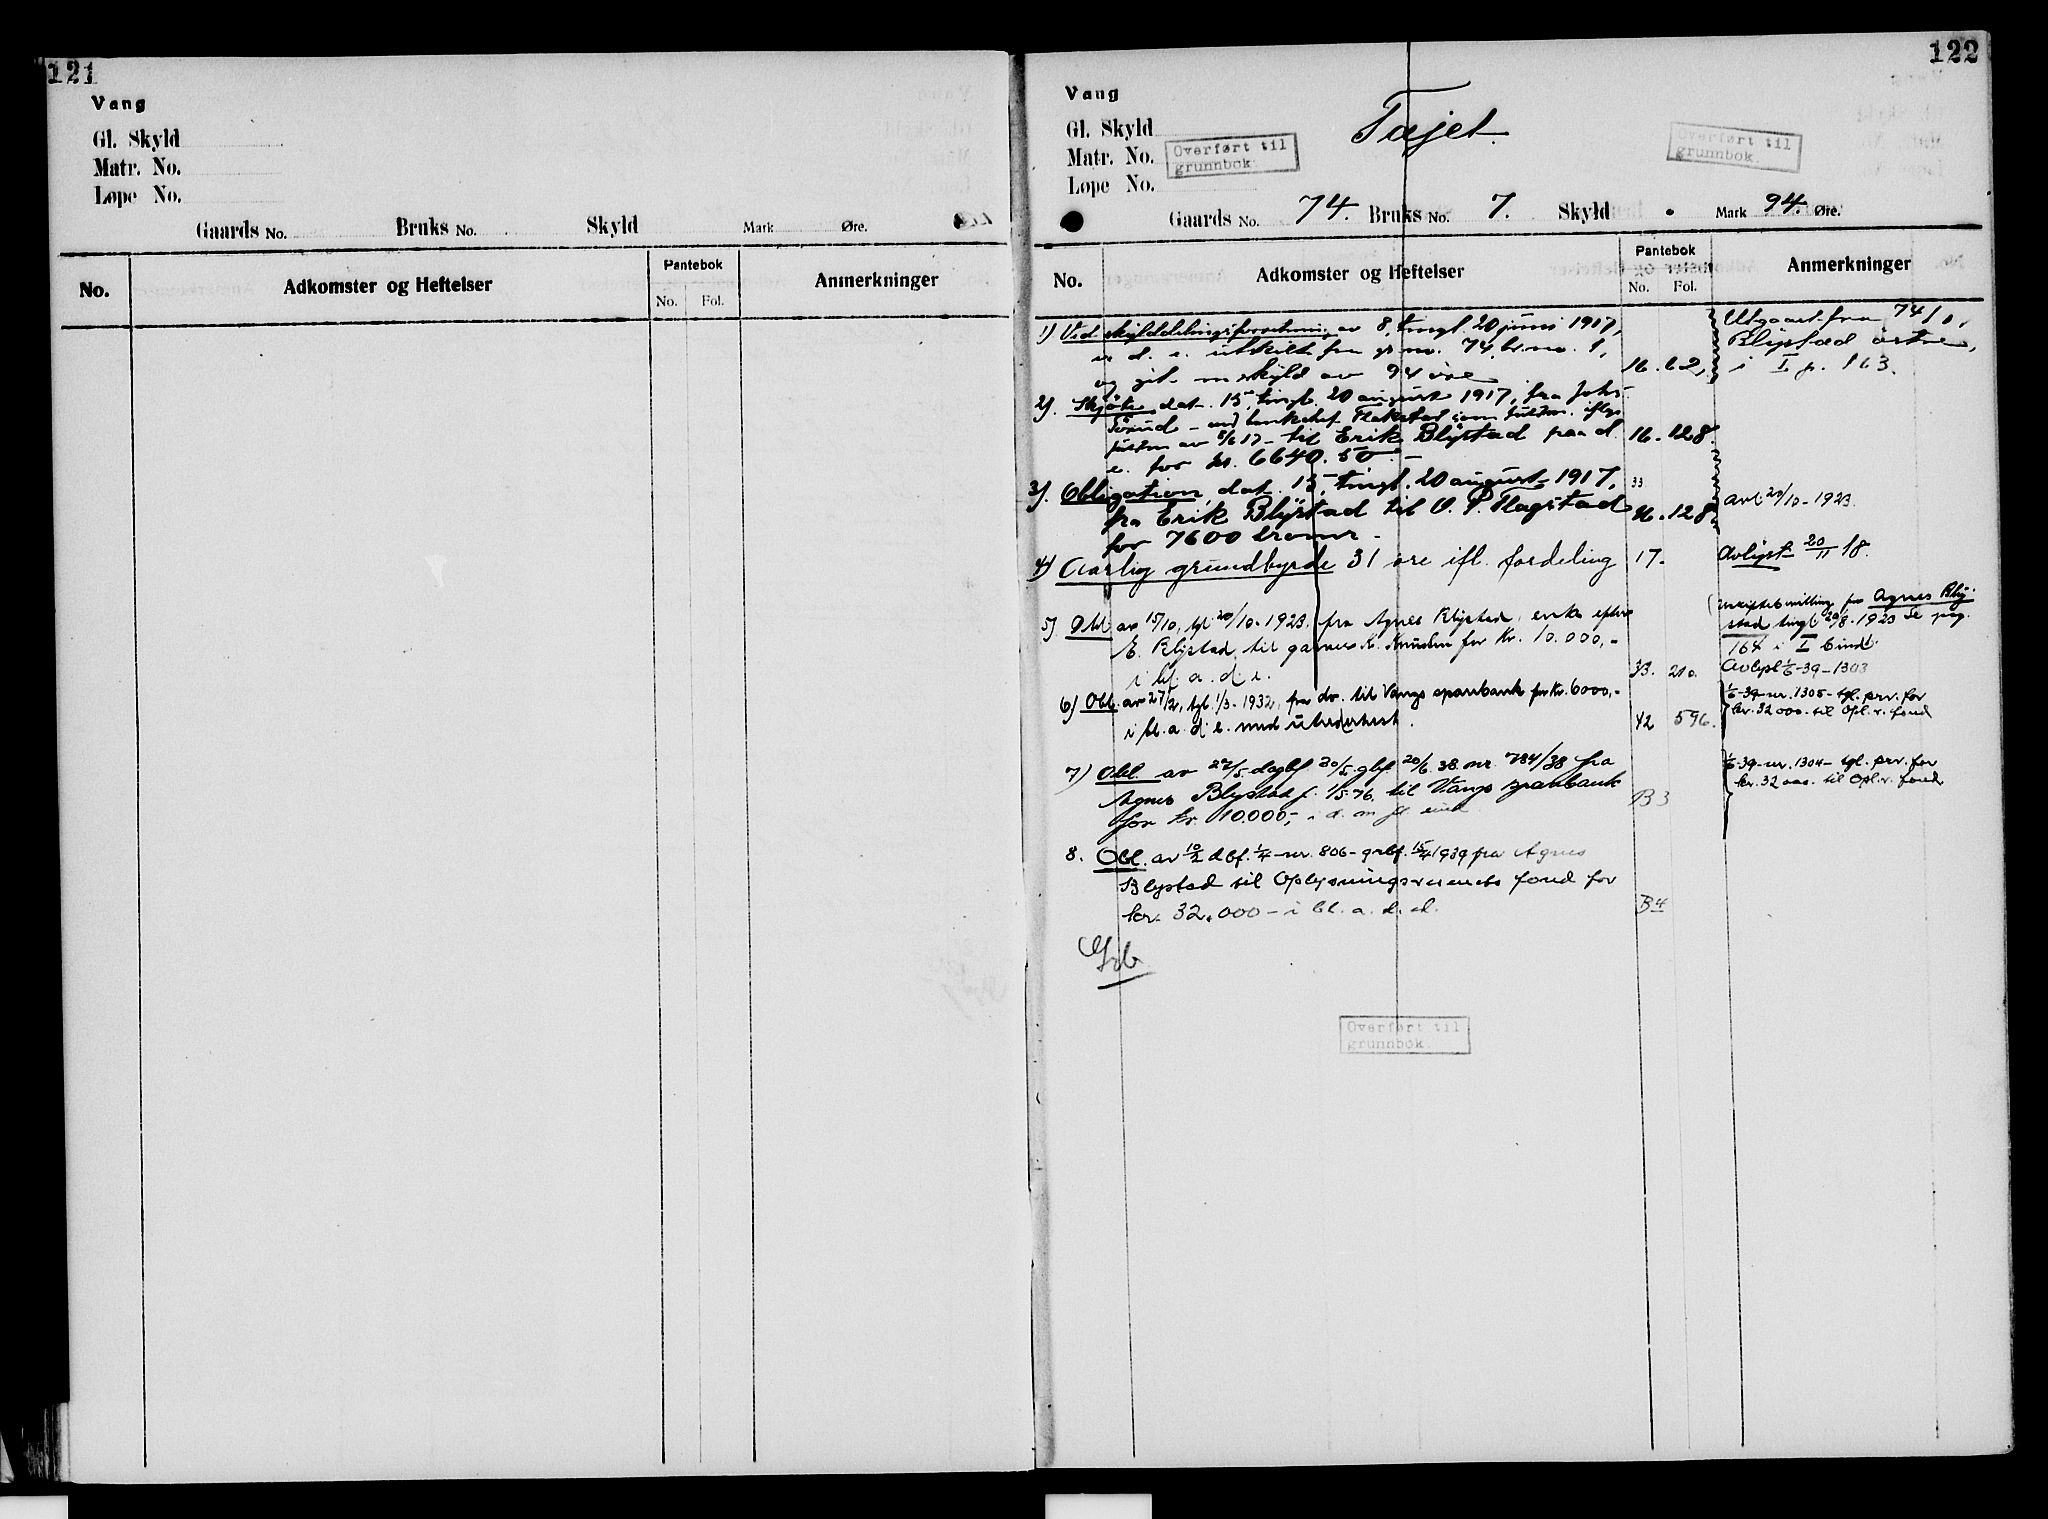 121
Vang
Gl. Skyld
Matr. No.
Løpe No.
Gaards No. Bruks No. Skyld Mark Øre.
No. Adkomster og Heftelser Pantebok No. Fol. Anmerkninger
122
Vang
Gl. Skyld
Matr. No.
Løpe No.
Tajet.
Overført til
grunnbok.
Overført til
grunnbok.
Gaards No. 74. Bruks No. 7. Skyld . Mark 94. Øre.
No. Adkomster og Heftelser Pantebok No. Fol. Anmerkninger
1) Ved skylddelingsforretning av 8, tingl. 20 juni 1917,
er d. e. utskilt fra gr. no. 74, br. no. 1,
og git en skyld av 94 øre 16. 62,
Utgaat fra 74/1,
Blystad östre,
i I p. 163.
2). Skjöte, dat. 15, tingl. 20 august 1917, fra Johs.
til Erik Blÿstad paa d. 16. 128.
e. for kr. 6640.50. -
3). Obligation, dat. 15, tingl. 20 august 1917, 33
fra Erik Blÿstad til O. P. Flagstad 16. 128.
for 7600 kroner -
avl 20/10 - 1923.
4) Aarlig grundbyrde 31 øre ifl. fordeling 17.
Avlyst 20/11 18.
5) Obl av 15/10, tgl 20/10 - 1923. fra Agnes Blystad, enke efter
E. Blystad, til K. Knudsen for Kr. 10.000,-
i bl. a. d. e. 33. 210.
Uskiftebevilling for Agnes Bly-
stad tingl 20/8 - 1923 Se pag.
164 i I bind.
Avlyst 1/6-39 - 1303
6) Obl. av 27/2, tgl. 1/3 - 1932, fra do. til Vangs sparebank for Kr. 6000,-
i bl. a. d. e. med 42 596.
1/6-39-nr. 1305 - tgl. prv. for
kr. 32 000.- til Opl. v. fond
7) Obl. av 27/5 dagbf 30/5. gbf. 20/6. 38. nr. 784/38 fra
Agnes Blystad f. 1/5.76, til Vangs sparebank
for kr. 10.000,- i d. B3
1/6-39-nr. 1304 - tgl. prv. for
kr. 32 000. til Opl. v. fond
8. Obl. av 10/2 dbf. 1/4 - nr. 806 - grbf. 15/4 1939 fra Agnes
Blystad til Oplysningsvesenets fond for
kr. 32.000 - i bl. a. d. ed. B4
Grb
Overført til
grunnbok.